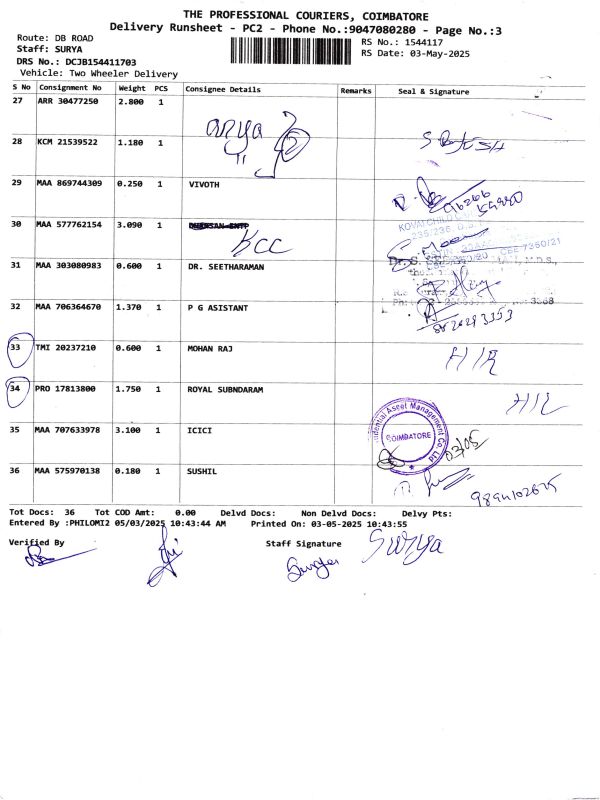 THE PROFESSIONAL COURIERS, COIMBATORE
Delivery Runsheet - PC2 - Phone No.:9047080280 - Page No.:3
Route: DB ROAD
Staff: SURYA
DRS No.: DCJB154411703
Vehicle: Two Wheeler Delivery
RS No.: 1544117
RS Date: 03-May-2025
S No Consignment No Weight PCS Consignee Details Remarks Seal & Signature
27 ARR 30477250 2.800 1
28 KCM 21539522 1.180 1
29 MAA 869744309 0.250 1 VIVOTH
30 MAA 577762154 3.090 1 KCC
31 MAA 303080983 0.600 1 DR. SEETHARAMAN
32 MAA 706364670 1.370 1 P G ASISTANT
33 TMI 20237210 0.600 1 MOHAN RAJ
34 PRO 17813800 1.750 1 ROYAL SUBNDARAM
35 MAA 707633978 3.100 1 ICICI COIMBATORE 03/05
Asset Management Co. Ltd
36 MAA 575970138 0.180 1 SUSHIL
Tot Docs: 36 Tot COD Amt: 0.00 Delvd Docs: Non Delvd Docs: Delvy Pts:
Entered By :PHILOMI2 05/03/2025 10:43:44 AM Printed On: 03-05-2025 10:43:55
Verified By Staff Signature Surya
Surya